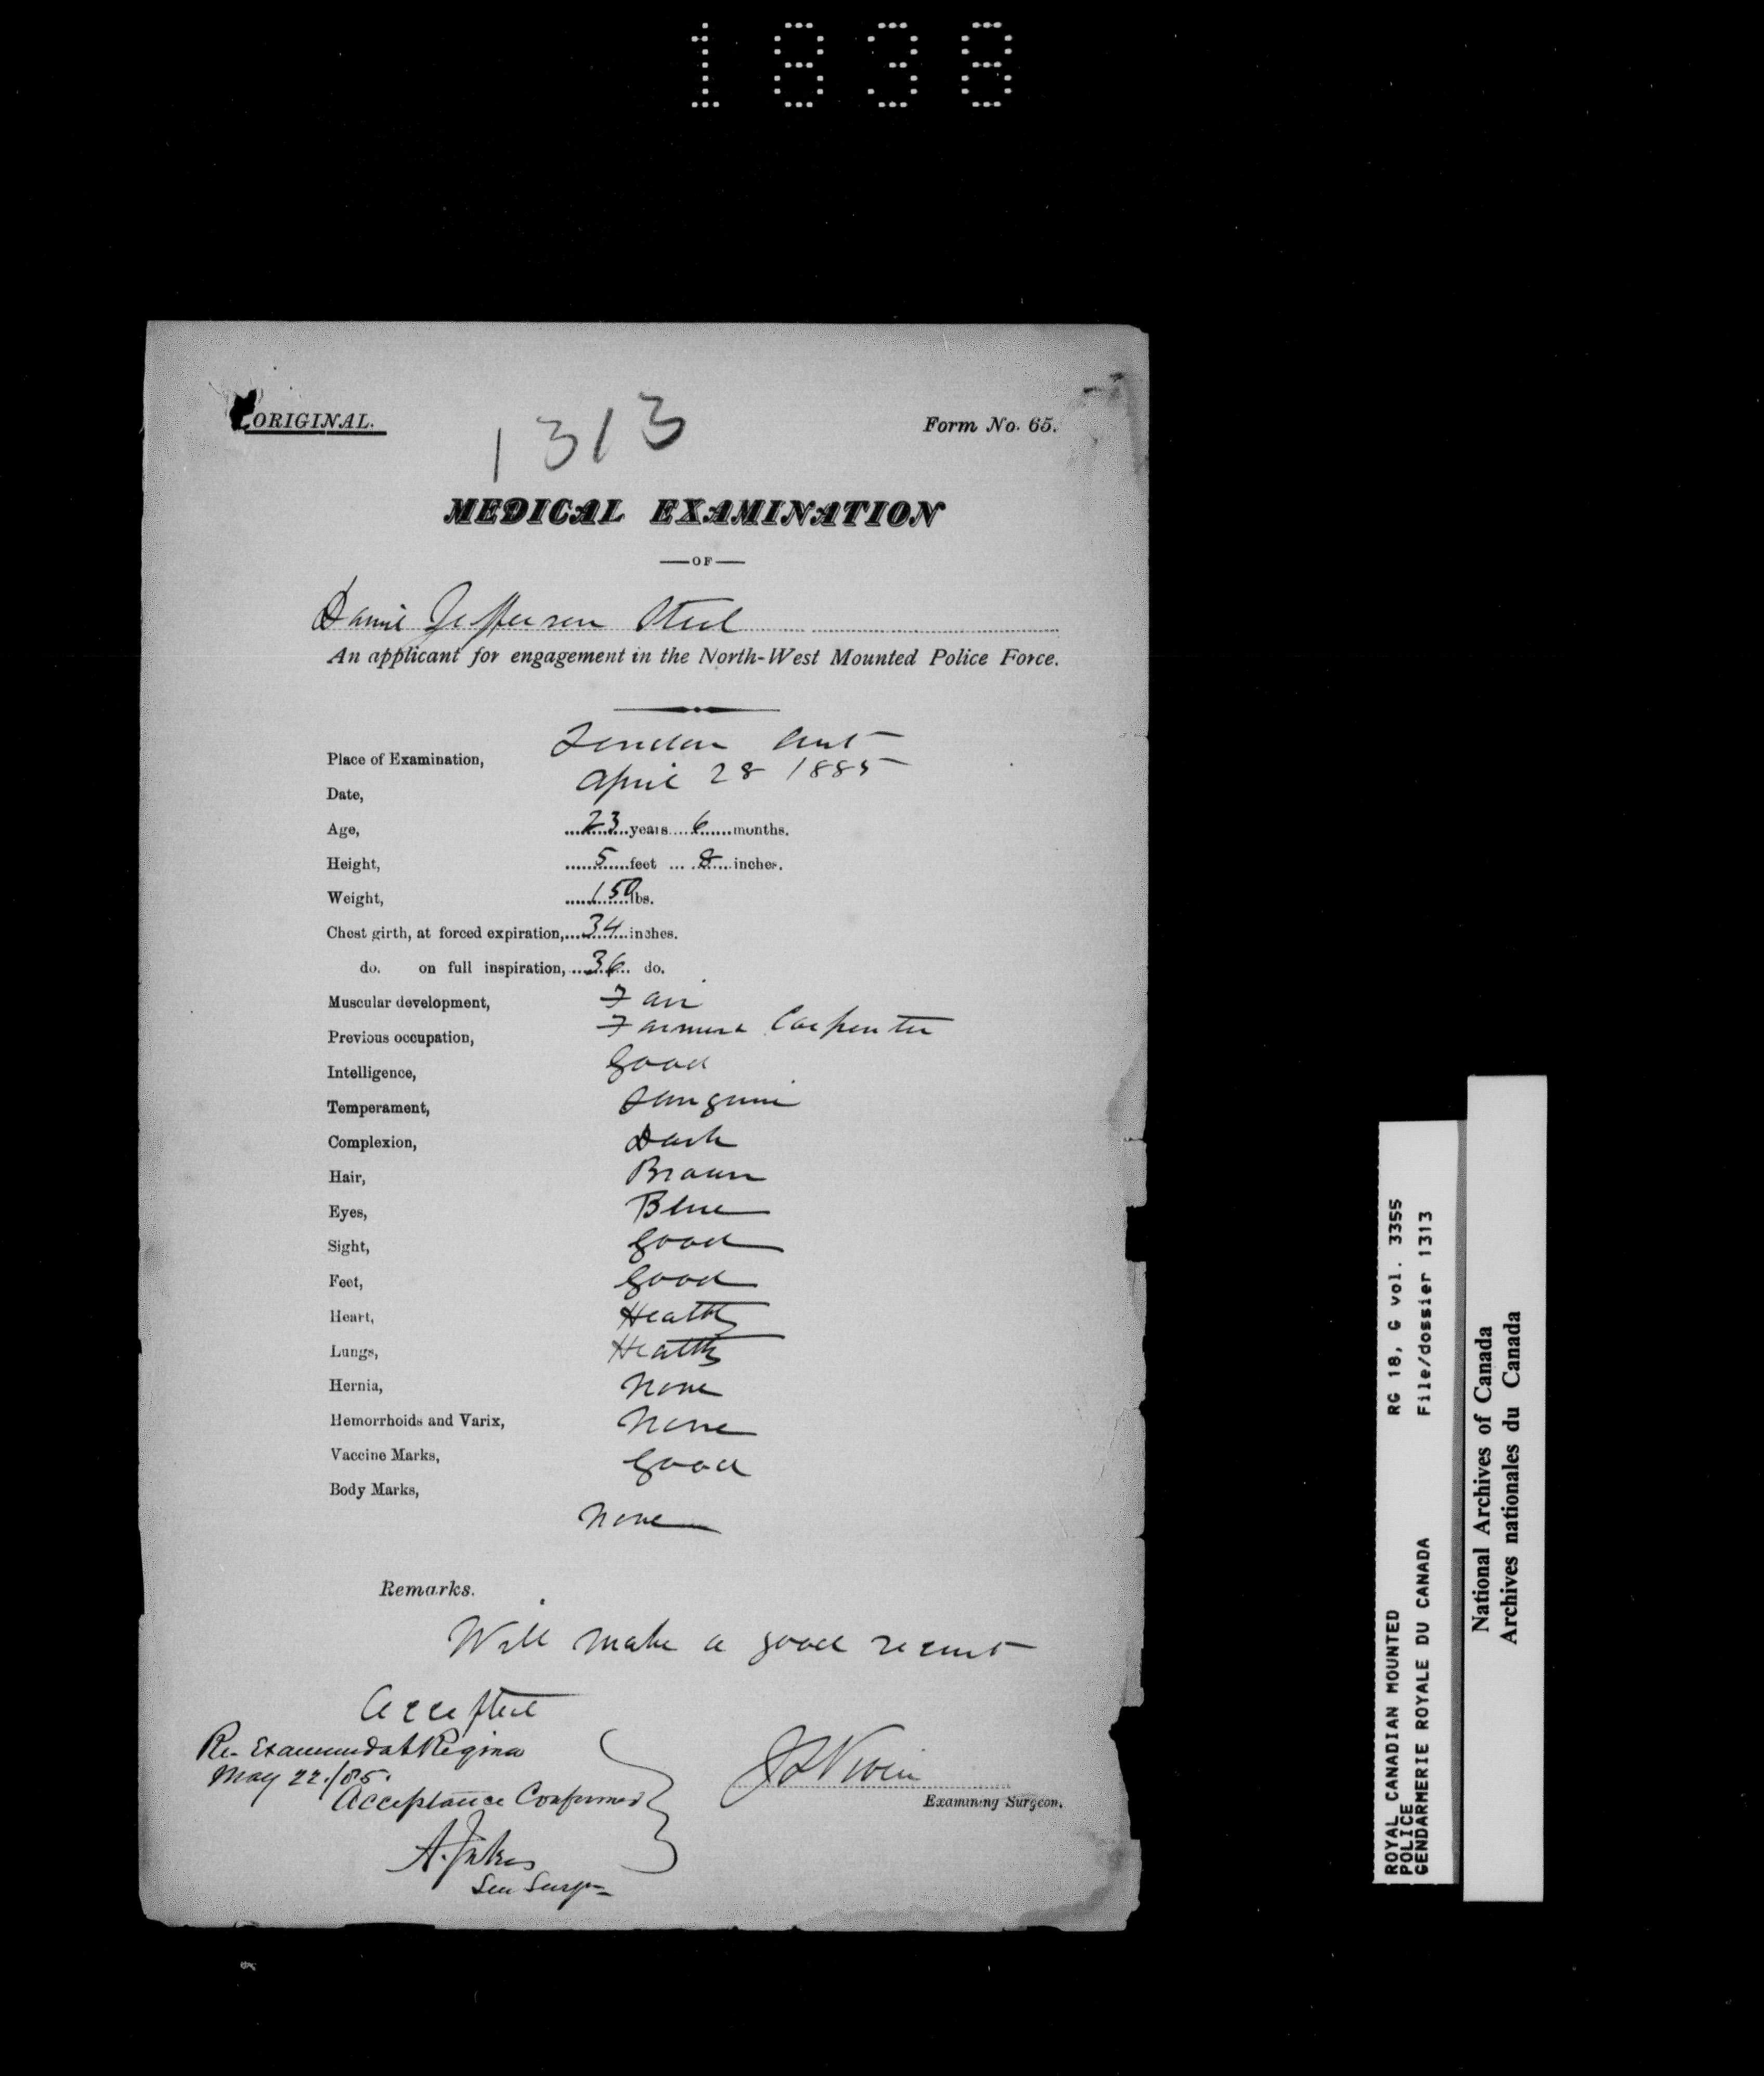 1838
ORIGINAL.
1313
Form No. 65.
MEDICAL EXAMINATION
—OF—
Daniel Jefferson Steel
An applicant for engagement in the North-West Mounted Police Force.
Place of Examination, London Ont
Date, April 28 1885
Age, 23 years 6 months.
Height, 5 feet 8 inches.
Weight, 150 lbs.
Chest girth, at forced expiration, 34 inches.
do. on full inspiration, 36 do.
Muscular development, Fair
Previous occupation, Farmer & Carpenter
Intelligence, Good
Temperament, Sanguine
Complexion, Dark
Hair, Brown
Eyes, Blue
Sight, Good
Feet, Good
Heart, Healthy
Lungs, Healthy
Hernia, None
Hemorrhoids and Varix, None
Vaccine Marks, Good
Body Marks,
None
Remarks.
Will make a good recruit
Accepted
Re-Examined at Regina
May 22./85.
Acceptance Confirmed
A. Jukes
Sen Surgn
Examining Surgeon.
ROYAL CANADIAN MOUNTED RG 18, G vol. 3355
POLICE
GENDARMERIE ROYALE DU CANADA File/dossier 1313
National Archives of Canada
Archives nationales du Canada